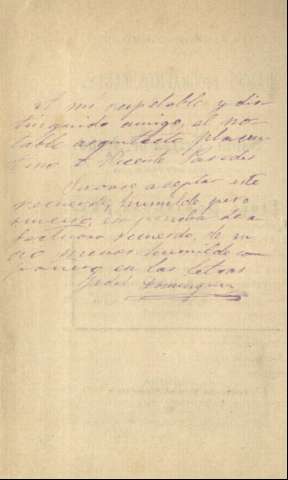 A mi respetable y dis
tinguido amigo, el no
table arquitecto placen
tino D. Vicente Paredes
Dígnese aceptar este
recuerdo, humilde pero
sincero, en prueba de a
fectuoso recuerdo, de su
no menos humilde com
pañero en las letras
Dominguez